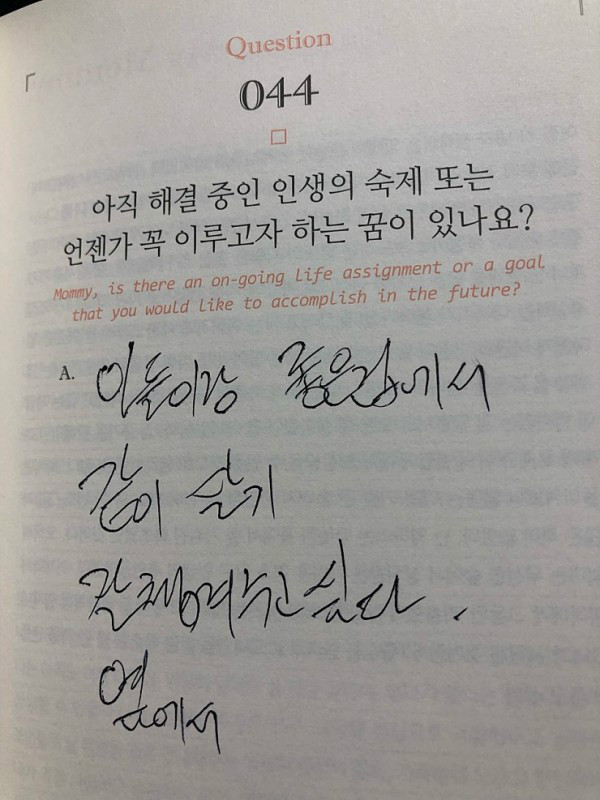 Question
044
아직 해결 중인 인생의 숙제 또는
언젠가 꼭 이루고자 하는 꿈이 있나요?
Mommy, is there an on-going life assignment or a goal
that you would like to accomplish in the future?
A. 아들이랑 좋은집에서
같이 살기
잘챙겨주고싶다.
옆에서